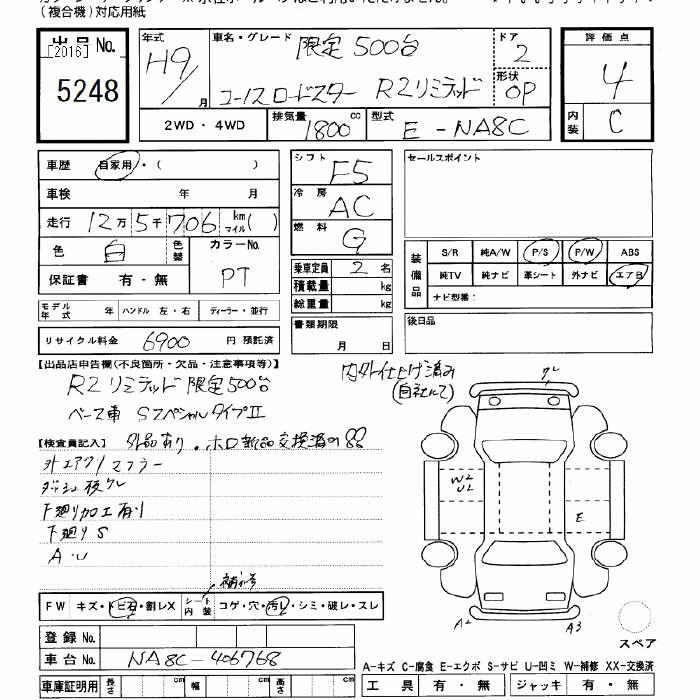 (複合機)対応用紙
出品No.
[2016]
5248
年式 H9/ 月
車名・グレード 限定500台
ユーノスロードスター R2リミテッド
ドア 2
形状 OP
評価点 4
内装 C
2WD・4WD
排気量 1800 cc
型式 E-NA8C
車歴 自家用・( )
車検 年 月
走行 12万5千706 km マイル( )
色 白
色替
カラーNo. PT
保証書 有・無
モデル年式 年
ハンドル 左・右
ディーラー・並行
リサイクル料金 6900 円 預託済
シフト F5
冷房 AC
燃料 G
乗車定員 2 名
積載量 kg
総重量 kg
書類期限
月 日
セールスポイント
装備品
S/R 純A/W P/S P/W ABS
純TV 純ナビ 革シート 外ナビ エアB
ナビ型番:
後日品
【出品店申告欄(不良箇所・欠品・注意事項等)】
R2リミテッド限定500台
ベース車 SスペシャルタイプII
内外仕上げ済み
(自社にて)
【検査員記入】 外品あり・ホロ新品交換済の
外エアク/マフラー
ダッシュ板ワレ
下廻り加工有り
下廻りS
A・U
補修
FW キズ・トビ石・割レX
シート内装 コゲ・穴・汚レ・シミ・破レ・スレ
W2
U2
E
A2
A3
スペア
登録No.
車台No. NA8C-406768
A-キズ C-腐食 E-エクボ S-サビ U-凹ミ W-補修 XX-交換済
車庫証明用 長さ cm 幅 cm cm
工具 有・無 ジャッキ 有・無